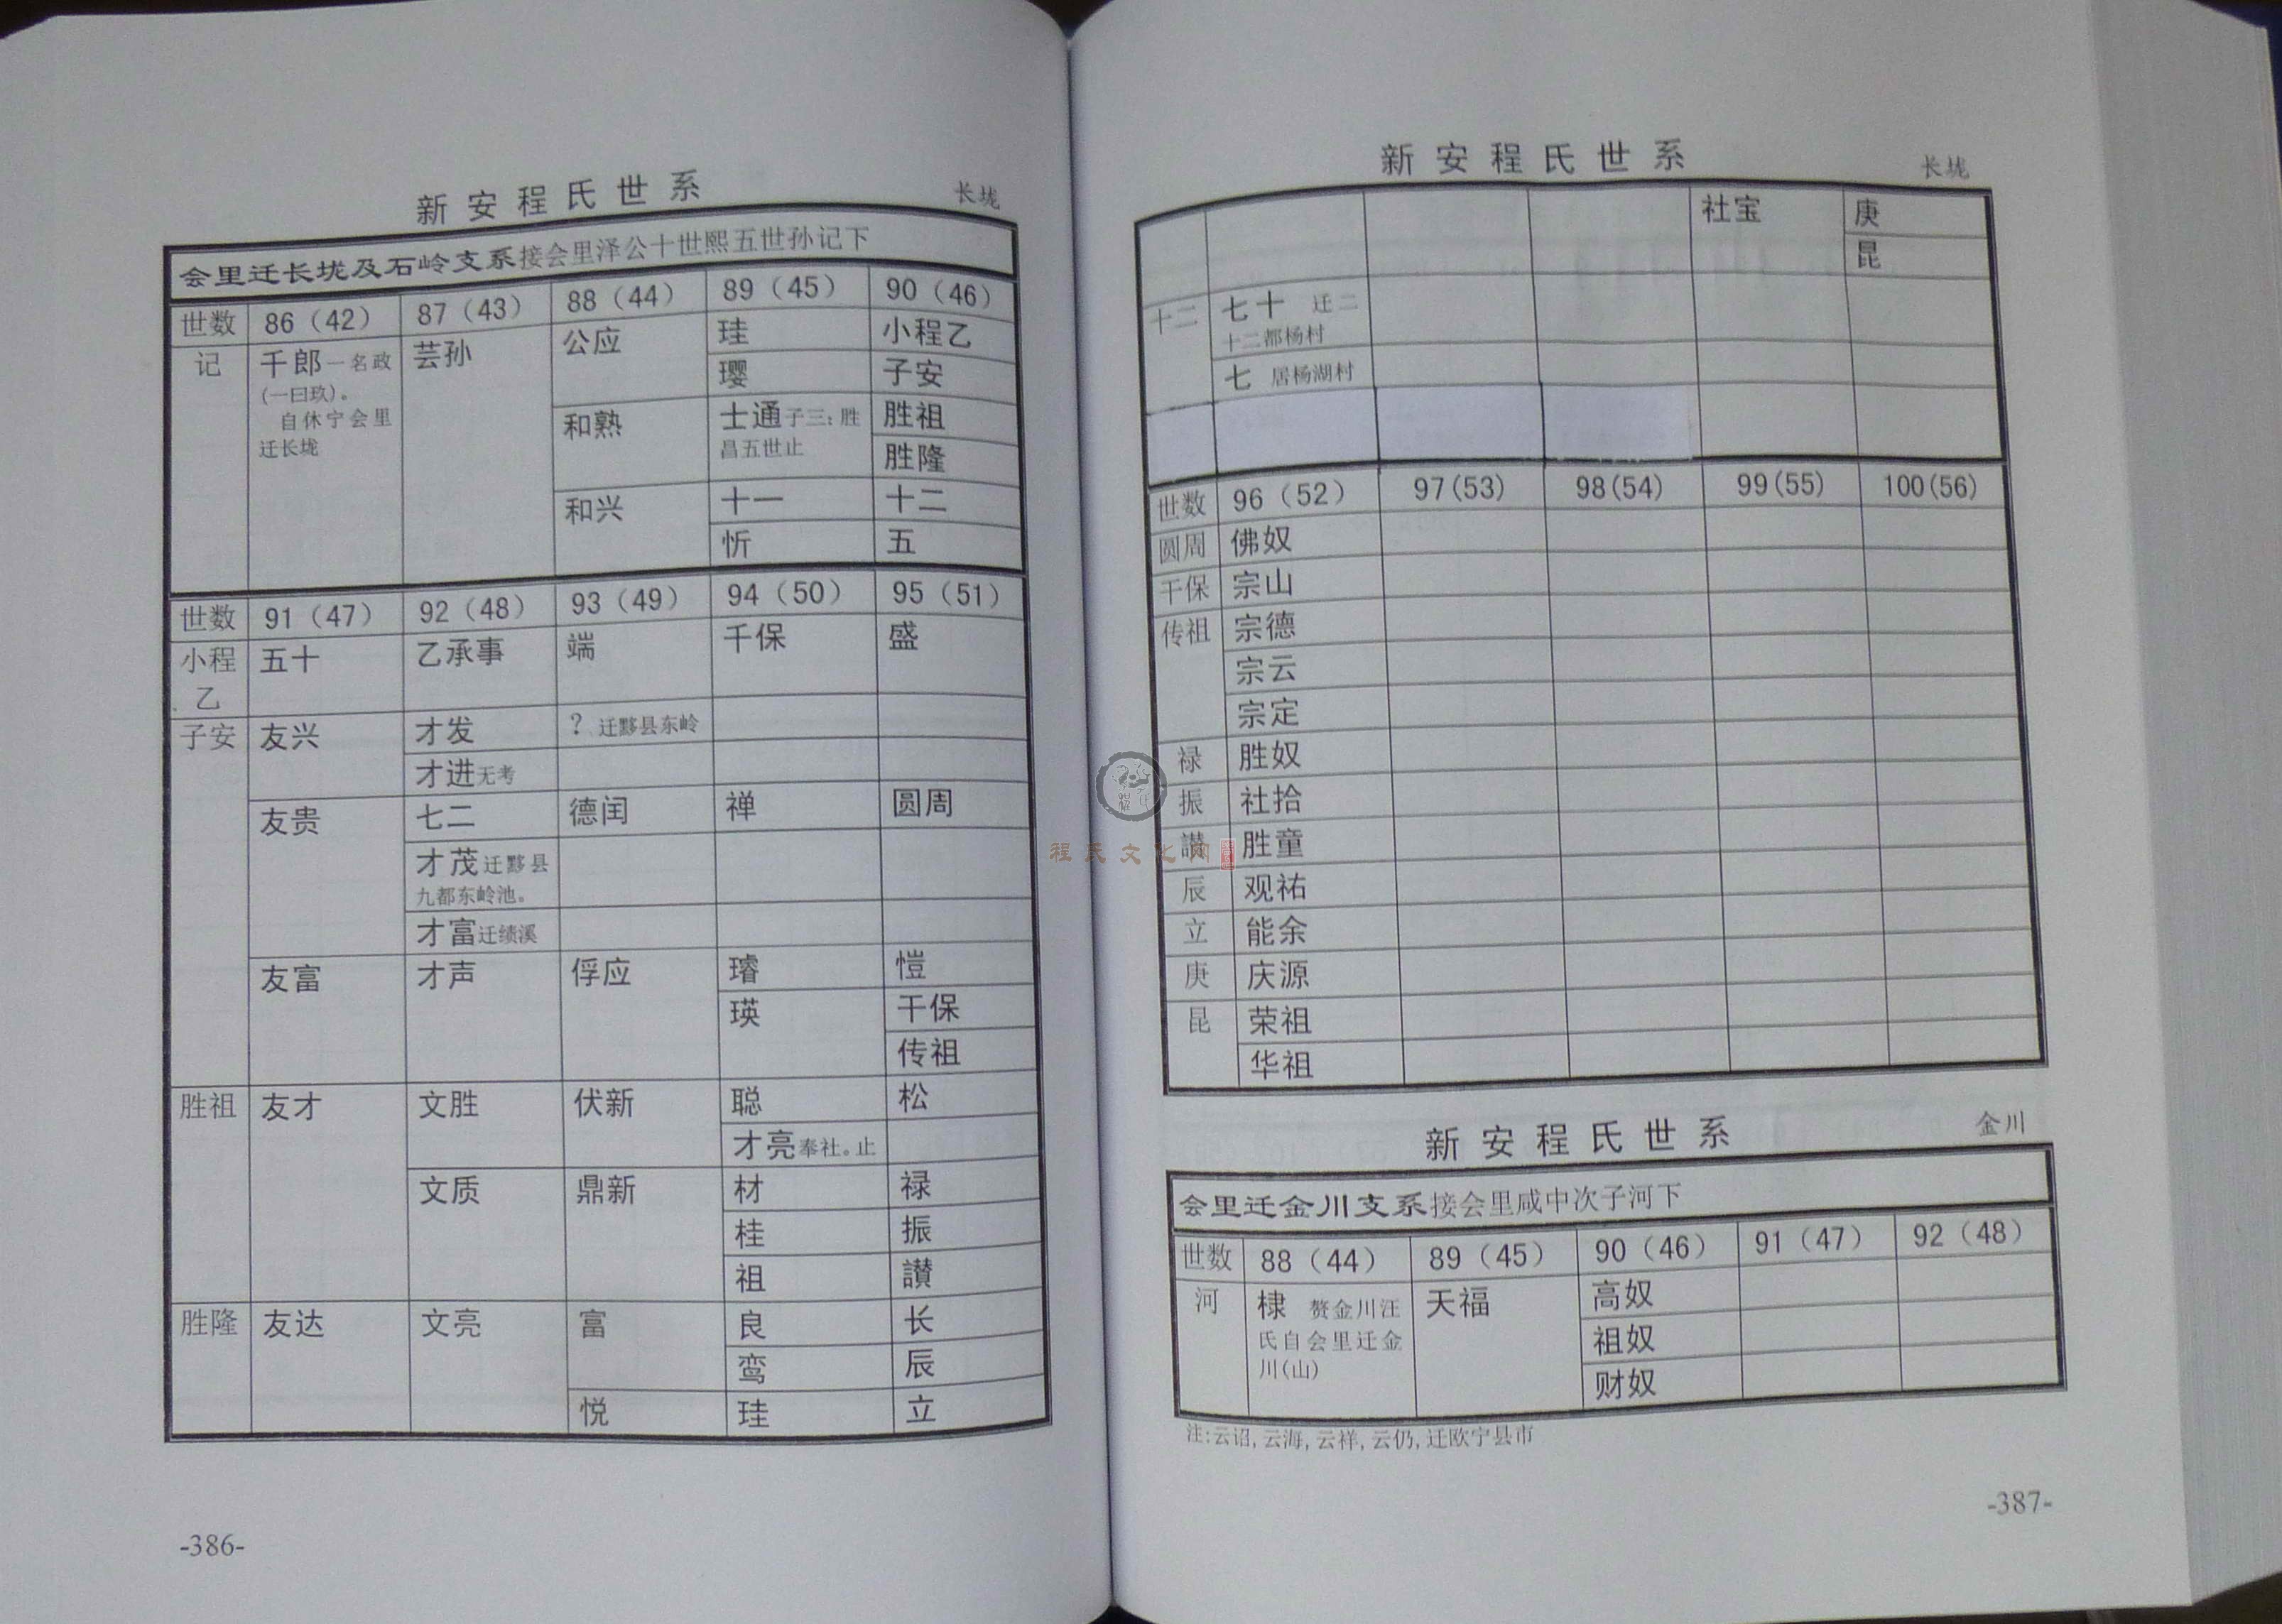 新安程氏世系
长垅
会里迁长垅及石岭支系接会里泽公十世熙五世孙记下
世数 86（42） 87（43） 88（44） 89（45） 90（46）
记 千郎一名政 芸孙 公应 珪 小程乙
(一曰玖)。 璎 子安
自休宁会里 和熟 士通子三：胜 胜祖
迁长垅 昌五世止 胜隆
和兴 十一 十二
忻 五
世数 91（47） 92（48） 93（49） 94（50） 95（51）
小程 五十 乙承事 端 千保 盛
乙
子安 友兴 才发 ？ 迁黟县东岭
才进无考
友贵 七二 德闰 禅 圆周
才茂迁黟县
九都东岭池。
才富迁绩溪
友富 才声 俘应 璿 愷
瑛 干保
传祖
胜祖 友才 文胜 伏新 聪 松
才亮奉社。止
文质 鼎新 材 禄
桂 振
祖 讃
胜隆 友达 文亮 富 良 长
鸾 辰
悦 珪 立
-386-
新安程氏世系
长垅
社宝 庚
昆
十二 七十 迁二
十二都杨村
七 居杨湖村
世数 96（52） 97(53) 98(54) 99(55) 100(56)
圆周 佛奴
干保 宗山
传祖 宗德
宗云
宗定
禄 胜奴
振 社拾
讃 胜童
辰 观祐
立 能余
庚 庆源
昆 荣祖
华祖
程氏文化网
新安程氏世系
金川
会里迁金川支系接会里咸中次子河下
世数 88（44） 89（45） 90（46） 91（47） 92（48）
河 棣 赘金川汪 天福 高奴
氏自会里迁金 祖奴
川(山) 财奴
注:云诏,云海,云祥,云仍,迁欧宁县市
-387-